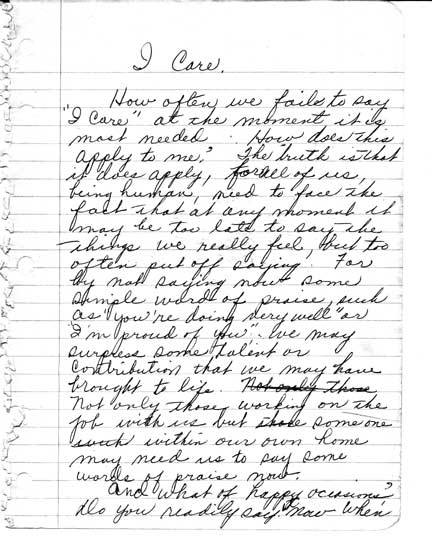 I Care.
How often we fails to say
"I Care" at the moment it is
most needed. How does this
apply to me? The truth is that
it does apply, for all of us,
being human, need to face the
fact that at any moment it
may be too late to say the
things we really feel, but too
often put off saying. For
by not saying now some
simple word of praise, such
as "you're doing very well" or
"I'm proud of you". we may
surpress some talent or
contribution that we may have
brought to life. Not only those
Not only those working on the
job with us but those someone
such within our own home
may need us to say some
words of praise now.
And what of happy occasions?
Do you readily say, "Now when